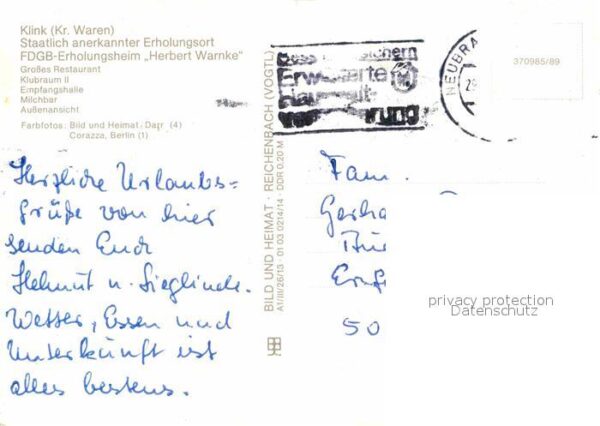 Klink (Kr. Waren)
Staatlich anerkannter Erholungsort
FDGB-Erholungsheim „Herbert Warnke“
Großes Restaurant
Klubraum II
Empfangshalle
Milchbar
Außenansicht
Farbfotos: Bild und Heimat-Darr (4)
Corazza, Berlin (1)
Herzliche Urlaubs=
grüße von hier
senden Euch
Helmut u. Sieglinde.
Wetter, Essen und
Unterkunft ist
alles bestens.
BILD UND HEIMAT · REICHENBACH (VOGTL)
A1/III/26/13 01 03 02 14/14 DDR 0,20 M
sichern
Erweiterte
Haushalt-
NEUBRA
370985/89
Fam.
Gerha
50
privacy protection
Datenschutz